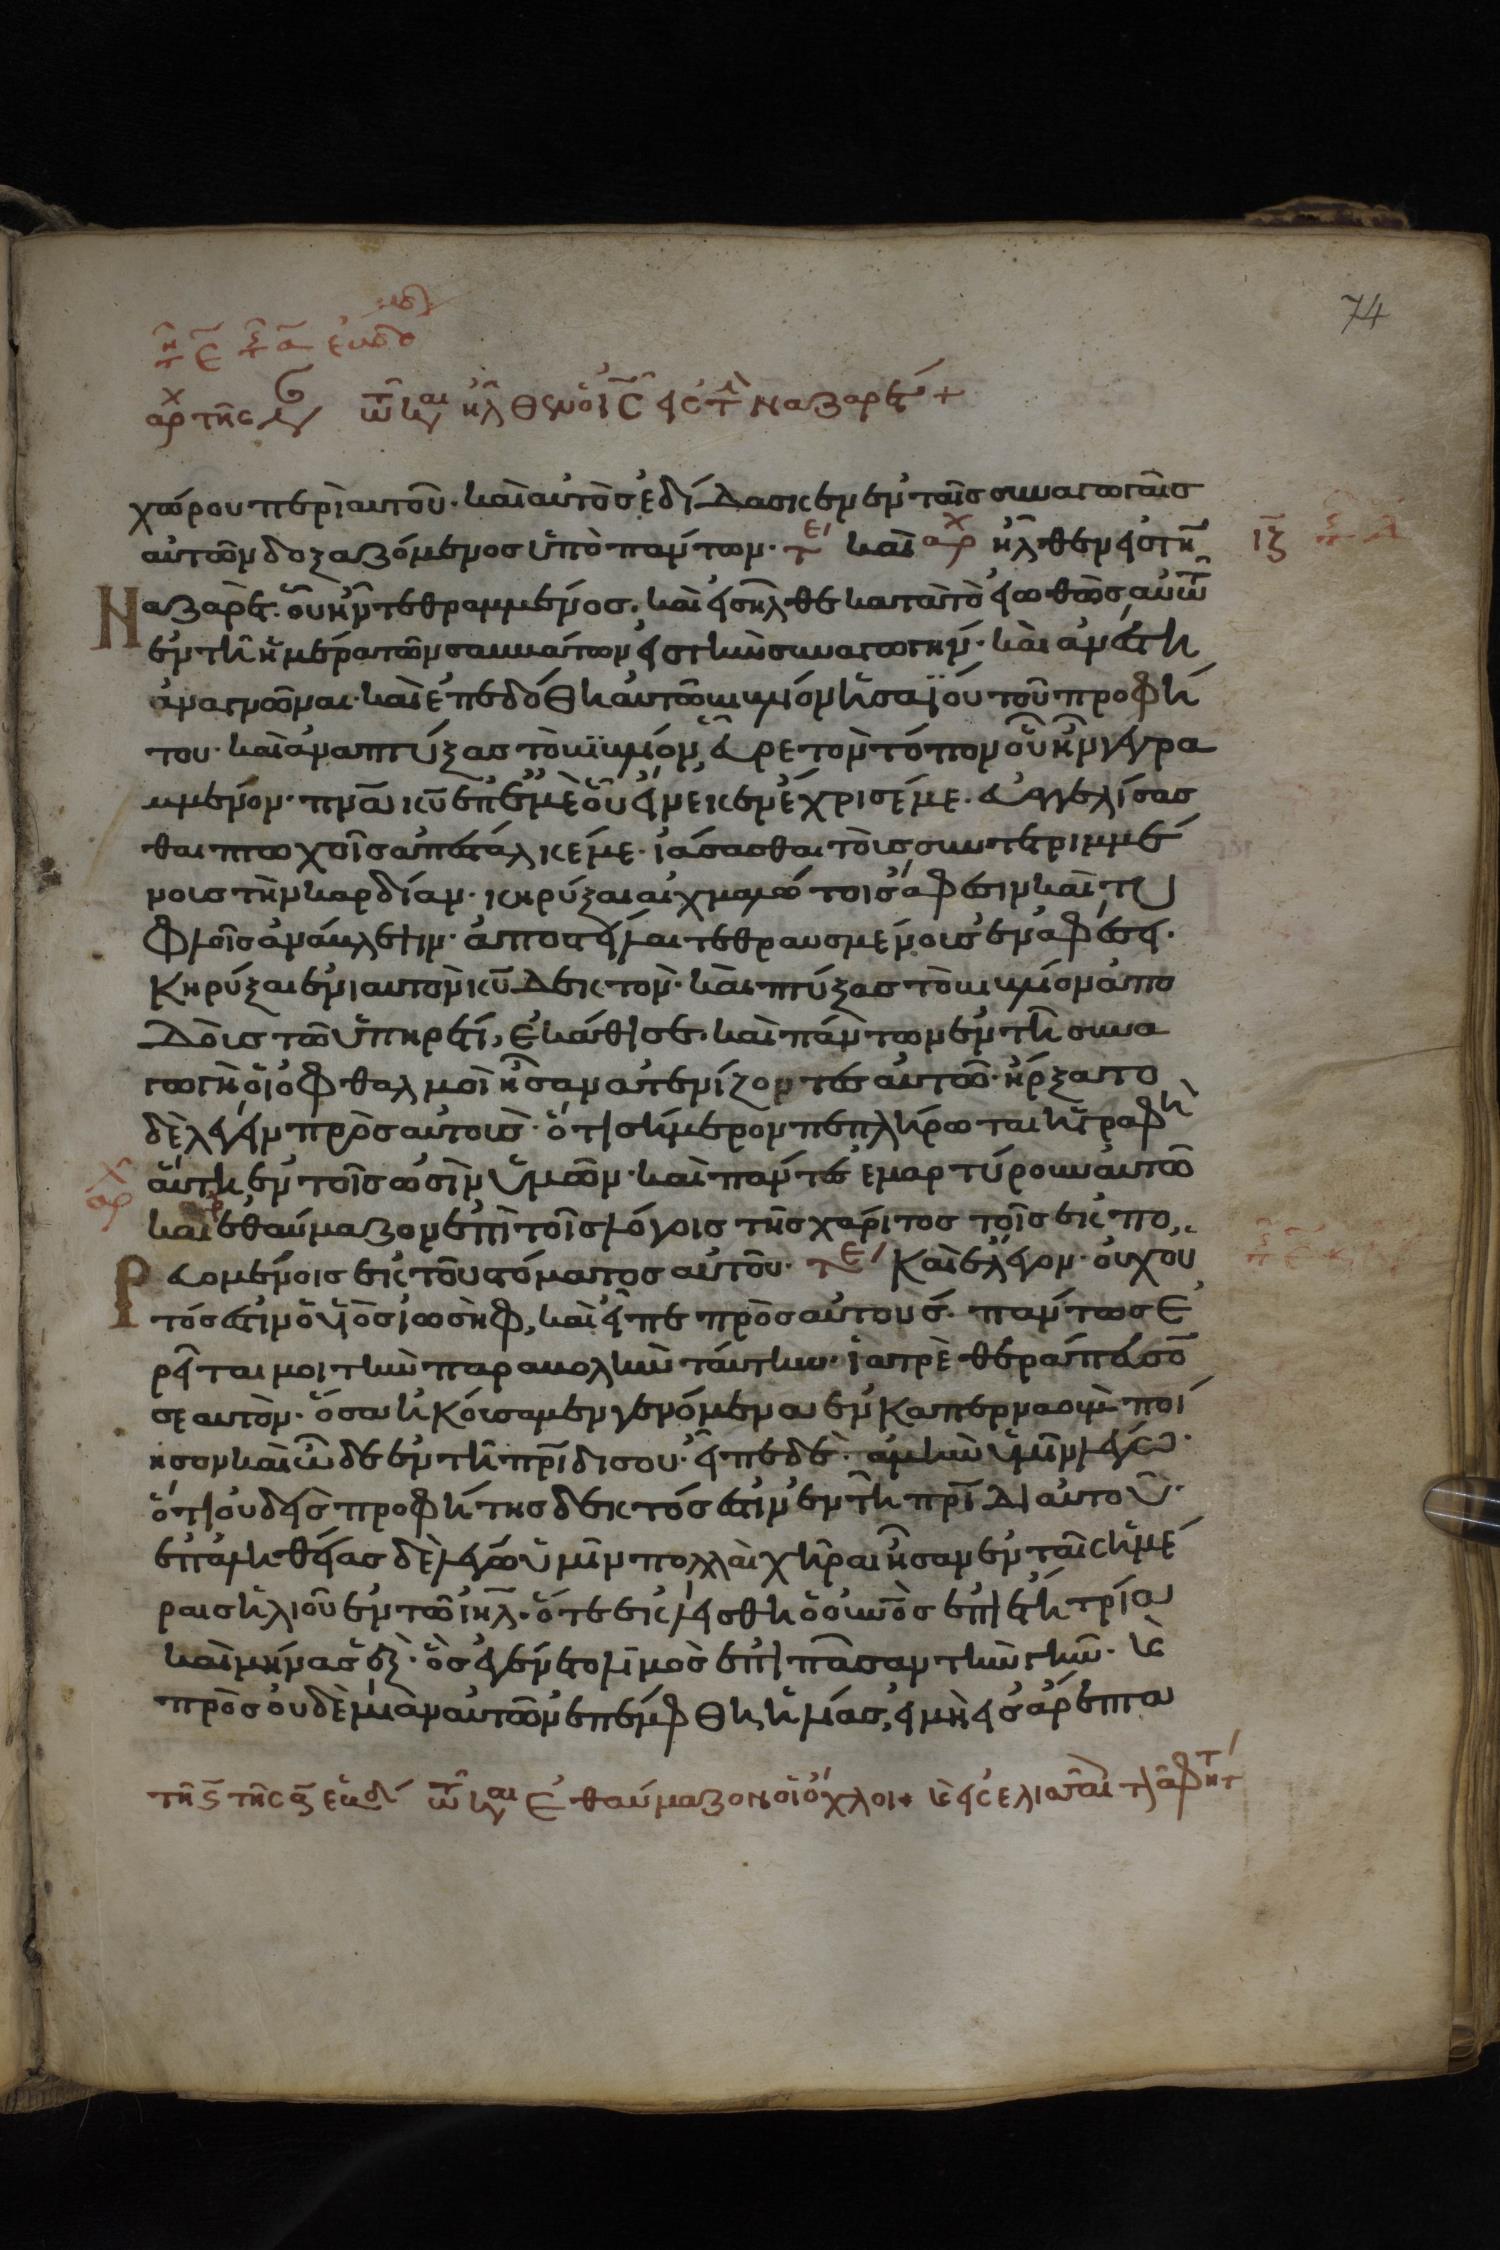 74
τῆ ε̅ τῆ α̅ ἑβδο
ἀρχ τῆς ιν τῶ και ἦλθεν ὁ ις̅ εἰς τὴ Ναζαρέτ +
χώρου περὶ αυτοῦ· και αὐτὸς ἐδίδασκεν ἐν ταῖς συναγωγαῖς
αὐτῶν δοξαζόμενος ὑπὸ πάντων· τε καὶ ἀρχ ἦλθεν εἰς τὴν
Ναζαρὲτ· οὗ ἦν τεθραμμένος· καὶ εἰσῆλθε κατὰ τὸ εἰωθὸς αὐτῶ
ἐν τῆ ἡμέρα τῶν σαββάτων εἰς τὴν συναγωγήν· καὶ ἀνέστη
ἀναγνῶναι· καὶ ἐπεδόθη αὐτῶ βιβλίον ἡσαΐου τοῦ προφή
του· καὶ ἀναπτύξας τὸ βιβλίον, εὗρε τὸν τόπον οὗ ἦν γεγρα
μμένον· πνα̅ κυ̅ ἐπ' ἐμὲ οὗ εἵνεκεν ἔχρισέ με· εὐαγγελίσασ
θαι πτωχοῖς ἀπέσταλκέ με· ἰάσασθαι τοὺς συντετριμμέ
νους τὴν καρδίαν· κηρύξαι αἰχμαλώτοις ἄφεσιν καὶ τυ
φλοῖς ἀνάβλεψιν· ἀποστεῖλαι τεθραυσμένους ἐν ἀφέσει·
Κηρύξαι ἐνιαυτὸν κυ̅ δεκτόν· καὶ πτύξας τὸ βιβλίον ἀπο
δοὺς τῶ ὑπηρέτη, ἐκάθισε· καὶ πάντων ἐν τῆ συνα
γωγῆ οἱ ὀφθαλμοὶ ἦσαν ἀτενίζοντες αὐτῶ· ἤρξατο
δὲ λέγειν πρὸς αὐτοὺς· ὅτι σήμερον πεπλήρωται ἡ γραφὴ
αὕτη ἐν τοῖς ὠσὶν ὑμῶν· καὶ πάντες ἐμαρτύρουν αὐτῶ
καὶ ἐθαύμαζον ἐπὶ τοῖς λόγοις τῆς χάριτος τοῖς ἐκπο
ρευομένοις ἐκ τοῦ στόματος αὐτοῦ· τε Καὶ ἔλεγον· οὐχ οὗ
τός ἐστιν ὁ υἱὸς ἰωσὴφ, καὶ εἶπε πρὸς αὐτούς· πάντως ἐ
ρεῖταί μοι τὴν παραβολὴν ταύτην· ἰατρὲ θεράπευσο
σεαυτὸν· ὅσα ἠκούσαμεν γενόμενα ἐν Καπερναοὺμ ποί
ησον καὶ ὧδε ἐν τῆ πρι̅δι σου· εἶπε δὲ· ἀμὴν ὑμῖν λέγω·
ὅτι οὐδεὶς προφήτης δεκτός ἐστιν ἐν τῆ πρι̅δι αὐτοῦ·
ἐπ' ἀληθείας δὲ λέγω ὑμῖν πολλαὶ χῆραι ἦσαν ἐν ταῖς ἡμέ
ραις ἡλιοῦ ἐν τῶ ιηλ̅· ὅτε ἐκλείσθη ὁ οὐνὸς ἐπὶ ἔτη τρία
καὶ μῆνας ἓξ· ὡς ἐγένετο λιμὸς ἐπὶ πᾶσαν τὴν γῆν· καὶ
πρὸς οὐδεμίαν αὐτῶν ἐπέμφθη ἡλίας, εἰ μὴ εἰς σάρεπτα
τῆ ς̅ τῆς α̅ ἑβδ τῶ και ἐθαύμαζον οἱ ὄχλοι